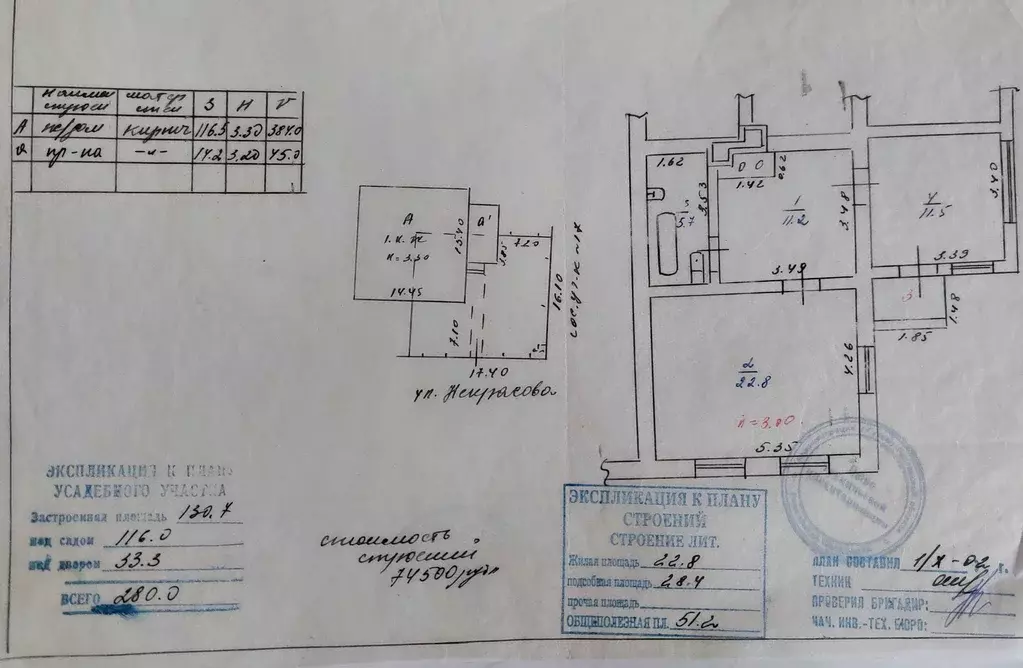 наимен строен матер стен S H V
А кирпич 116.5 3.30 384.0
а пр-ка -"- 14.2 3.20 45.0
А
1.к.ж
h=3.30
14.45
13.40
а'
3.85
7.20
16.10
7.10
17.40
ул. Некрасова
1.62
3.53
5
5.7
1.42
0.62
1
11.2
3.48
3.49
4
11.5
3.40
3.39
1.48
1.85
2
22.8
h=3.00
4.26
5.35
ЭКСПЛИКАЦИЯ К ПЛАНУ
УСАДЕБНОГО УЧАСТКА
Застроенная площадь 130.7
под садом 116.0
под двором 33.3
ВСЕГО 280.0
стоимость
строений
74500 руб
ЭКСПЛИКАЦИЯ К ПЛАНУ
СТРОЕНИЙ
СТРОЕНИЕ ЛИТ.
Жилая площадь 22.8
подсобная площадь 28.4
прочая площадь
ОБЩЕПОЛЕЗНАЯ ПЛ. 51.2
ПЛАН СОСТАВЛЕН 1/X-02 г.
ТЕХНИК
ПРОВЕРИЛ БРИГАДИР:
НАЧ. ИНВ.-ТЕХ. БЮРО: